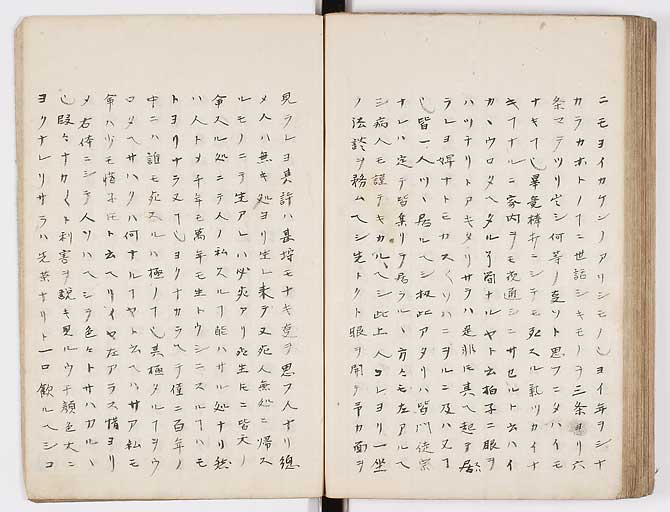 ニモヨイカケンノアリシモノ也ヨイ年ヲシナ
カラカホトノ丁ニ世話シキモノヲ三条ヨリ六
条マテツリ定シ何等ノ事ソト思フニタハイモ
ナキ丁也畢竟棒打ニシテモ死スル氣ツカイナ
キ丁ナルニ家内ヲモ夜通シニサセルト云ハイ
カヽウロタヘタル了簡ナルヤト云拍子ニ眼ヲ
ハツチリトアキタリサラハ是非ニ其ヘ起テ居
ラレヨ婢ナトモカ〱ソハニヲルニ及ハヌ丁
也皆一人ツヽ居ルヘシ扨此アタリハ皆門徒宗
ナレハ定テ皆集リテ居ラルヽ方々モ左アルヘ
シ病人モ謹テキカルヘシ此上人コレヨリ一坐
ノ法談ヲ務ムヘシ先トクト眼ヲ開テ予カ面ヲ
見ラレヨ其許ハ甚埒モナキ事ヲ思フ人ナリ総
メ人ハ無キ処ヨリ生レ来テ又死人無処ニ帰ス
ルモノニテ生アレハ必死アリ死生トモニ皆天ノ
命スル処ニテ人ノ私スル丁能ハサル処ナリ然
ハ人トメ千年モ萬年モ生トウシニスル丁ハモ
トヨリナラヌ丁也ヨクナカラヘテ僅ニ百年ノ
中ニハ誰モ死スルハ極ノ丁也其極タル丁ヲウ
ロタヘサハクハ何ナル丁ヤト云ヘハサア私モ
命ハ少モ惜ネトモト云ヘリイヤ左アラス惜ヨリ
メ右体ニシテ人ソハヘシヲ色々トサハカルヽ
也段々ナカ〱ト利害ヲ説キ見ルウチ顔色大ニ
ヨクナレリサラハ先薬ナリト一口飲ルヘシコ